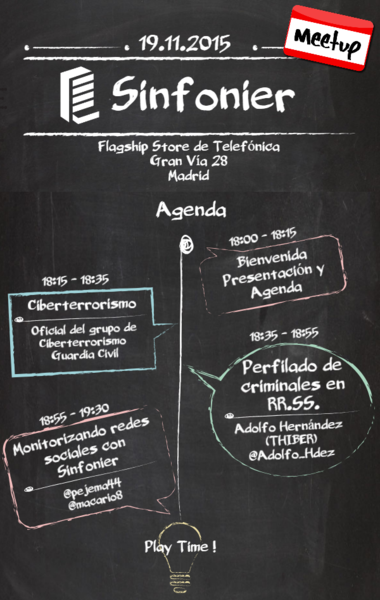 19.11.2015
Meetup
Sinfonier
Flagship Store de Telefónica
Gran Vía 28
Madrid
Agenda
18:00 - 18:15
Bienvenida
Presentación y
Agenda
18:15 - 18:35
Ciberterrorismo
Oficial del grupo de
Ciberterrorismo
Guardia Civil
18:35 - 18:55
Perfilado de
criminales en
RR.SS.
Adolfo Hernández
(THIBER)
@Adolfo_Hdez
18:55 - 19:30
Monitorizando redes
sociales con
Sinfonier
@pejema44
@macario8
Play Time !